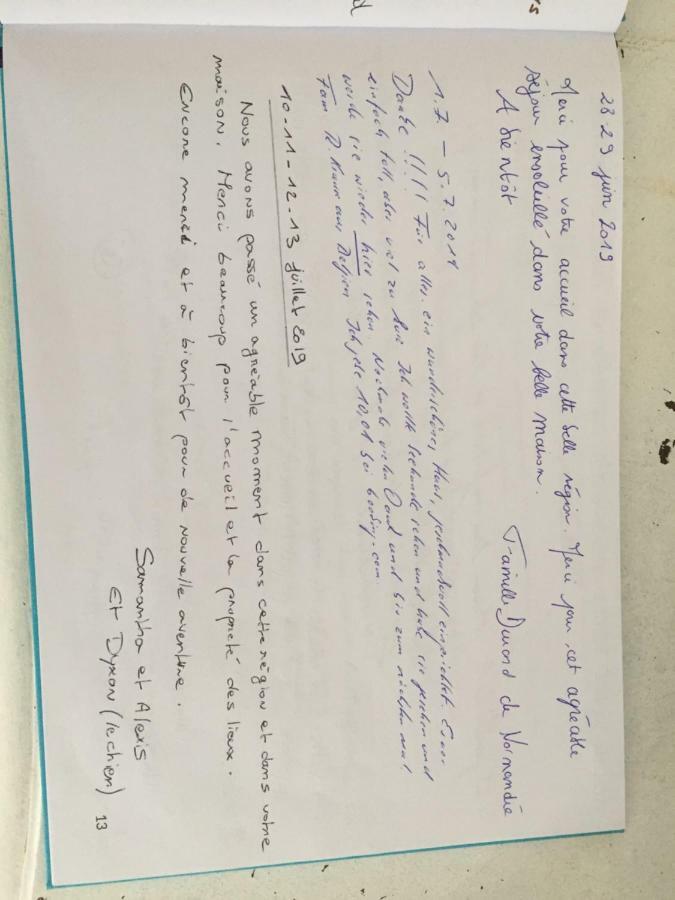 28 29 juin 2019
Merci pour votre accueil dans cette belle région. Merci pour cet agréable
séjour ensoleillé dans votre belle maison.
A bientôt
Famille Durand de Normandie
1.7. – 5.7.2019
Danke !!!! Für alles. ein wunderschönes Haus, geschmackvoll eingerichtet. Es war
einfach toll, aber viel zu kurz. Ich wollte Seehunde sehen und habe sie gesehen und
werde sie wieder hier sehen. Nochmals vielen Dank und bis zum nächsten mal
Fam. aus Belgien. Ich gebe 10,01 bei booking.com
10-11-12-13 juillet 2019
Nous avons passé un agréable moment dans cette région et dans votre
maison. Merci beaucoup pour l'accueil et la propreté des lieux.
Encore merci et à bientôt pour de nouvelle aventure.
Samantha et Alexis
Et Dyxon (le chien)
13